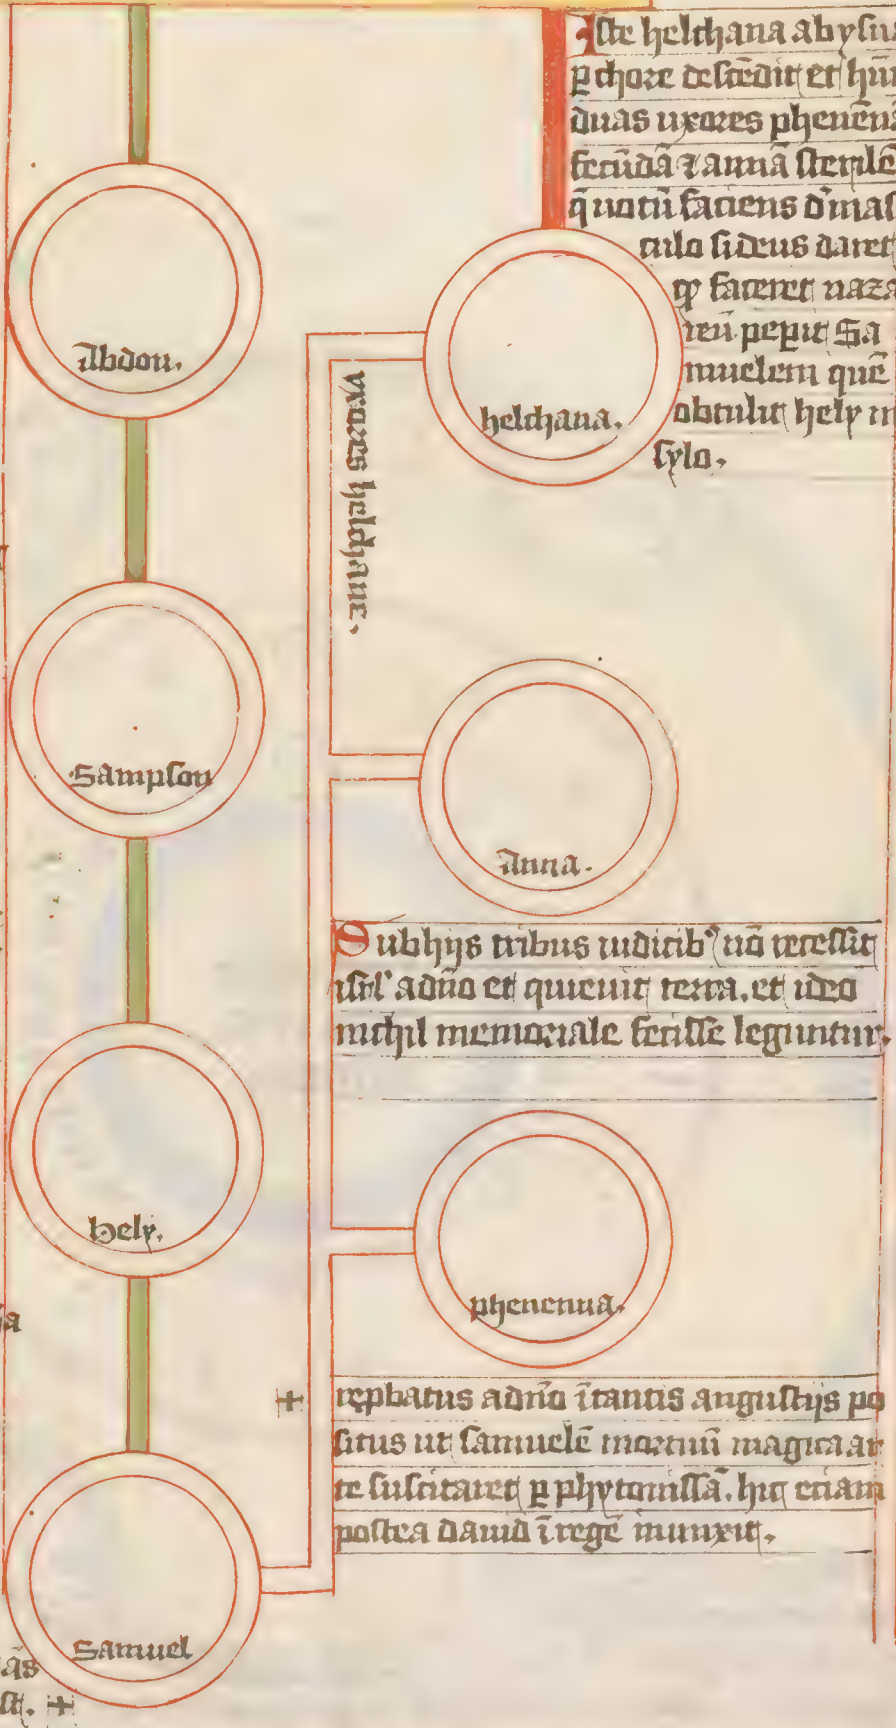 Iste helchana ab ysua
p chore descēdit et hūit
duas uxores phenenā
fecūdā ⁊ annā sterilē
q̄ uotū faciens d̓ mas
culo si deus daret
ꝙ faceret naza
reū peperit Sa
muelem quē
obtulit hely in
sylo.
Abdon.
helchana.
uxores helchane.
Sampson
Anna.
Sub hijs tribus iudicib⁹ nō recessit
isrl̓ a dn̄o et quieuit terra. et ideo
nichil memoriale fecisse leguntur.
hely.
phenenna.
+ rep̱batus a dn̄o ī tantis angustijs po
situs ut samuelē mortuū magica ar
te suscitaret p phytonissā. hic etiam
postea dauid ī regē inunxit.
Samuel
+